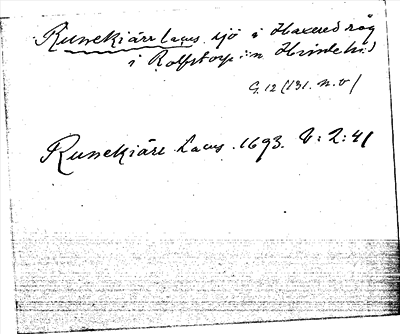 Runekiärr Lacus. sjö i Haxered råg
i Rolfstorps sn Himle hd
G. 12 (131. n. v)
Runekiärr Lacus. 1693. V: 2: 41